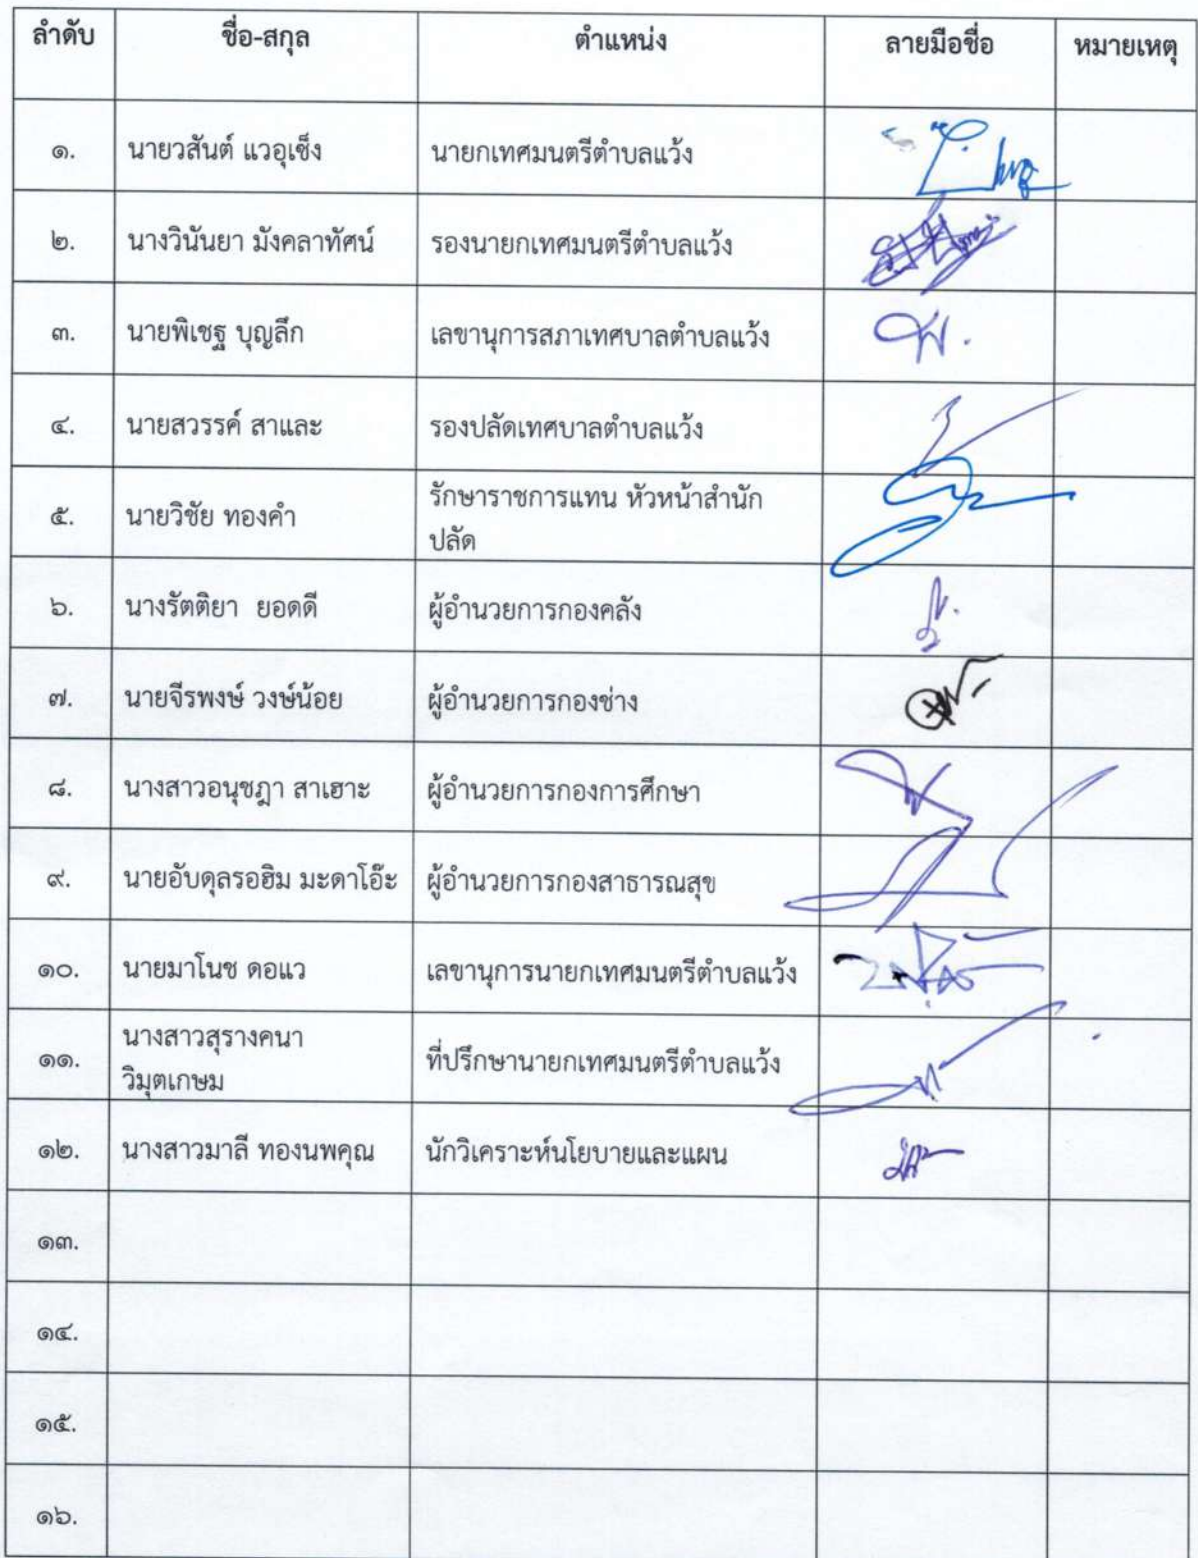 ลำดับ ชื่อ-สกุล ตำแหน่ง ลายมือชื่อ หมายเหตุ
๑. นายวสันต์ แวอุเซ็ง นายกเทศมนตรีตำบลแว้ง
๒. นางวินันยา มังคลาทัศน์ รองนายกเทศมนตรีตำบลแว้ง
๓. นายพิเชฐ บุญลึก เลขานุการสภาเทศบาลตำบลแว้ง
๔. นายสวรรค์ สาและ รองปลัดเทศบาลตำบลแว้ง
๕. นายวิชัย ทองคำ รักษาราชการแทน หัวหน้าสำนัก
ปลัด
๖. นางรัตติยา ยอดดี ผู้อำนวยการกองคลัง
๗. นายจีรพงษ์ วงษ์น้อย ผู้อำนวยการกองช่าง
๘. นางสาวอนุชฎา สาเฮาะ ผู้อำนวยการกองการศึกษา
๙. นายอับดุลรอฮิม มะดาโอ๊ะ ผู้อำนวยการกองสาธารณสุข
๑๐. นายมาโนช ดอแว เลขานุการนายกเทศมนตรีตำบลแว้ง
๑๑. นางสาวสุรางคนา ที่ปรึกษานายกเทศมนตรีตำบลแว้ง
วิมุตเกษม
๑๒. นางสาวมาลี ทองนพคุณ นักวิเคราะห์นโยบายและแผน
๑๓.
๑๔.
๑๕.
๑๖.